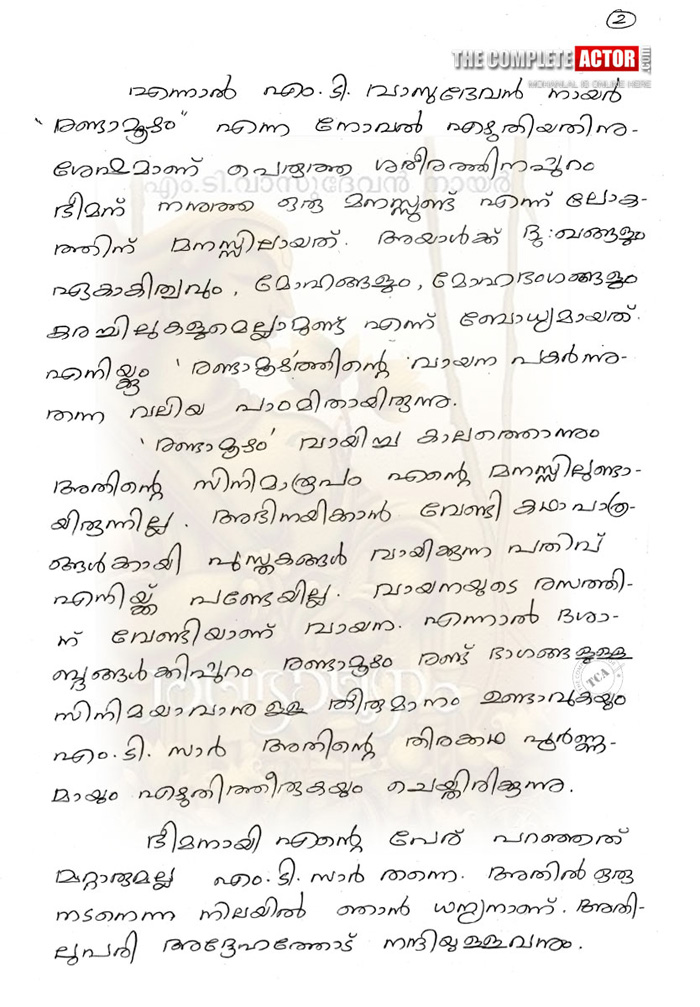 2
THE COMPLETE ACTOR .com
MOHANLAL IS ONLINE HERE
എന്നാൽ എം.ടി. വാസുദേവൻ നായർ
"രണ്ടാമൂഴം" എന്ന നോവൽ എഴുതിയതിനു-
ശേഷമാണ് പെരുത്ത ശരീരത്തിനപ്പുറം
എം.ടി.വാസുദേവൻ നായർ
ഭീമന് നനുത്ത ഒരു മനസ്സുണ്ട് എന്ന് ലോക-
ത്തിന് മനസ്സിലായത്. അയാൾക്ക് ദു:ഖങ്ങളും
ഏകാകിത്വവും, മോഹങ്ങളും, മോഹഭംഗങ്ങളും
കരച്ചിലുകളുമെല്ലാമുണ്ട് എന്ന് ബോധ്യമായത്.
എനിയ്ക്കും 'രണ്ടാമൂഴത്തിന്റെ' വായന പകർന്നു-
തന്ന വലിയ പാഠമിതായിരുന്നു.
'രണ്ടാമൂഴം' വായിച്ച കാലത്തൊന്നും
അതിന്റെ സിനിമാരൂപം എന്റെ മനസ്സിലുണ്ടാ-
യിരുന്നില്ല. അഭിനയിക്കാൻ വേണ്ടി കഥാപാത്ര-
ങ്ങൾക്കായി പുസ്തകങ്ങൾ വായിക്കുന്ന പതിവ്
എനിയ്ക്ക് പണ്ടേയില്ല. വായനയുടെ രസത്തി-
ന് വേണ്ടിയാണ് വായന. എന്നാൽ ദശാ-
ബ്ദങ്ങൾക്കിപ്പുറം രണ്ടാമൂഴം രണ്ട് ഭാഗങ്ങളുള്ള
TCA
രണ്ടാമൂഴം
സിനിമയാവാനുള്ള തീരുമാനം ഉണ്ടാവുകയും
എം.ടി. സാർ അതിന്റെ തിരക്കഥ പൂർണ്ണ-
മായും എഴുതിത്തീരുകയും ചെയ്തിരിക്കുന്നു.
ഭീമനായി എന്റെ പേര് പറഞ്ഞത്
മറ്റാരുമല്ല എം.ടി. സാർ തന്നെ. അതിൽ ഒരു
നടനെന്ന നിലയിൽ ഞാൻ ധന്യനാണ്. അതി-
ലുപരി അദ്ദേഹത്തോട് നന്ദിയുള്ളവനും.